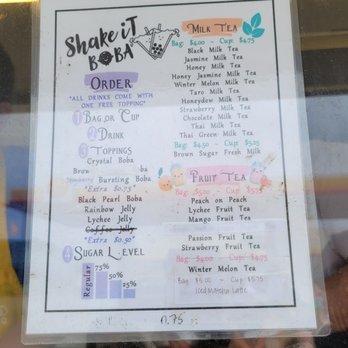 Shake iT
BOBA
ORDER
*ALL DRINKS COME WITH
ONE FREE TOPPING*
1 BAG OR CUP
2 DRINK
3 TOPPINGS
Crystal Boba
Brow ba
Bursting Boba
*Extra $0.75*
Black Pearl Boba
Rainbow Jelly
Lychee Jelly
Coffee Jelly
*Extra $0.50*
4 SUGAR LEVEL
Regular
75%
50%
25%
MILK TEA
Bag: $4.00 - Cup: $4.75
Black Milk Tea
Jasmine Milk Tea
Honey Milk Tea
Honey Jasmine Milk Tea
Winter Melon Milk Tea
Taro Milk Tea
Honeydew Milk Tea
Strawberry Milk Tea
Chocolate Milk Tea
Thai Milk Tea
Thai Green Milk Tea
Bag: $4.50 - Cup: $5.25
Brown Sugar Fresh Milk
FRUIT TEA
Bag: $5.00 - Cup: $5.75
Peach on Peach
Lychee Fruit Tea
Mango Fruit Tea
Passion Fruit Tea
Strawberry Fruit Tea
Bag: $4.00 - Cup: $4.75
Winter Melon Tea
Bag $5.00 - Cup $5.75
Iced Matcha Latte
0.75